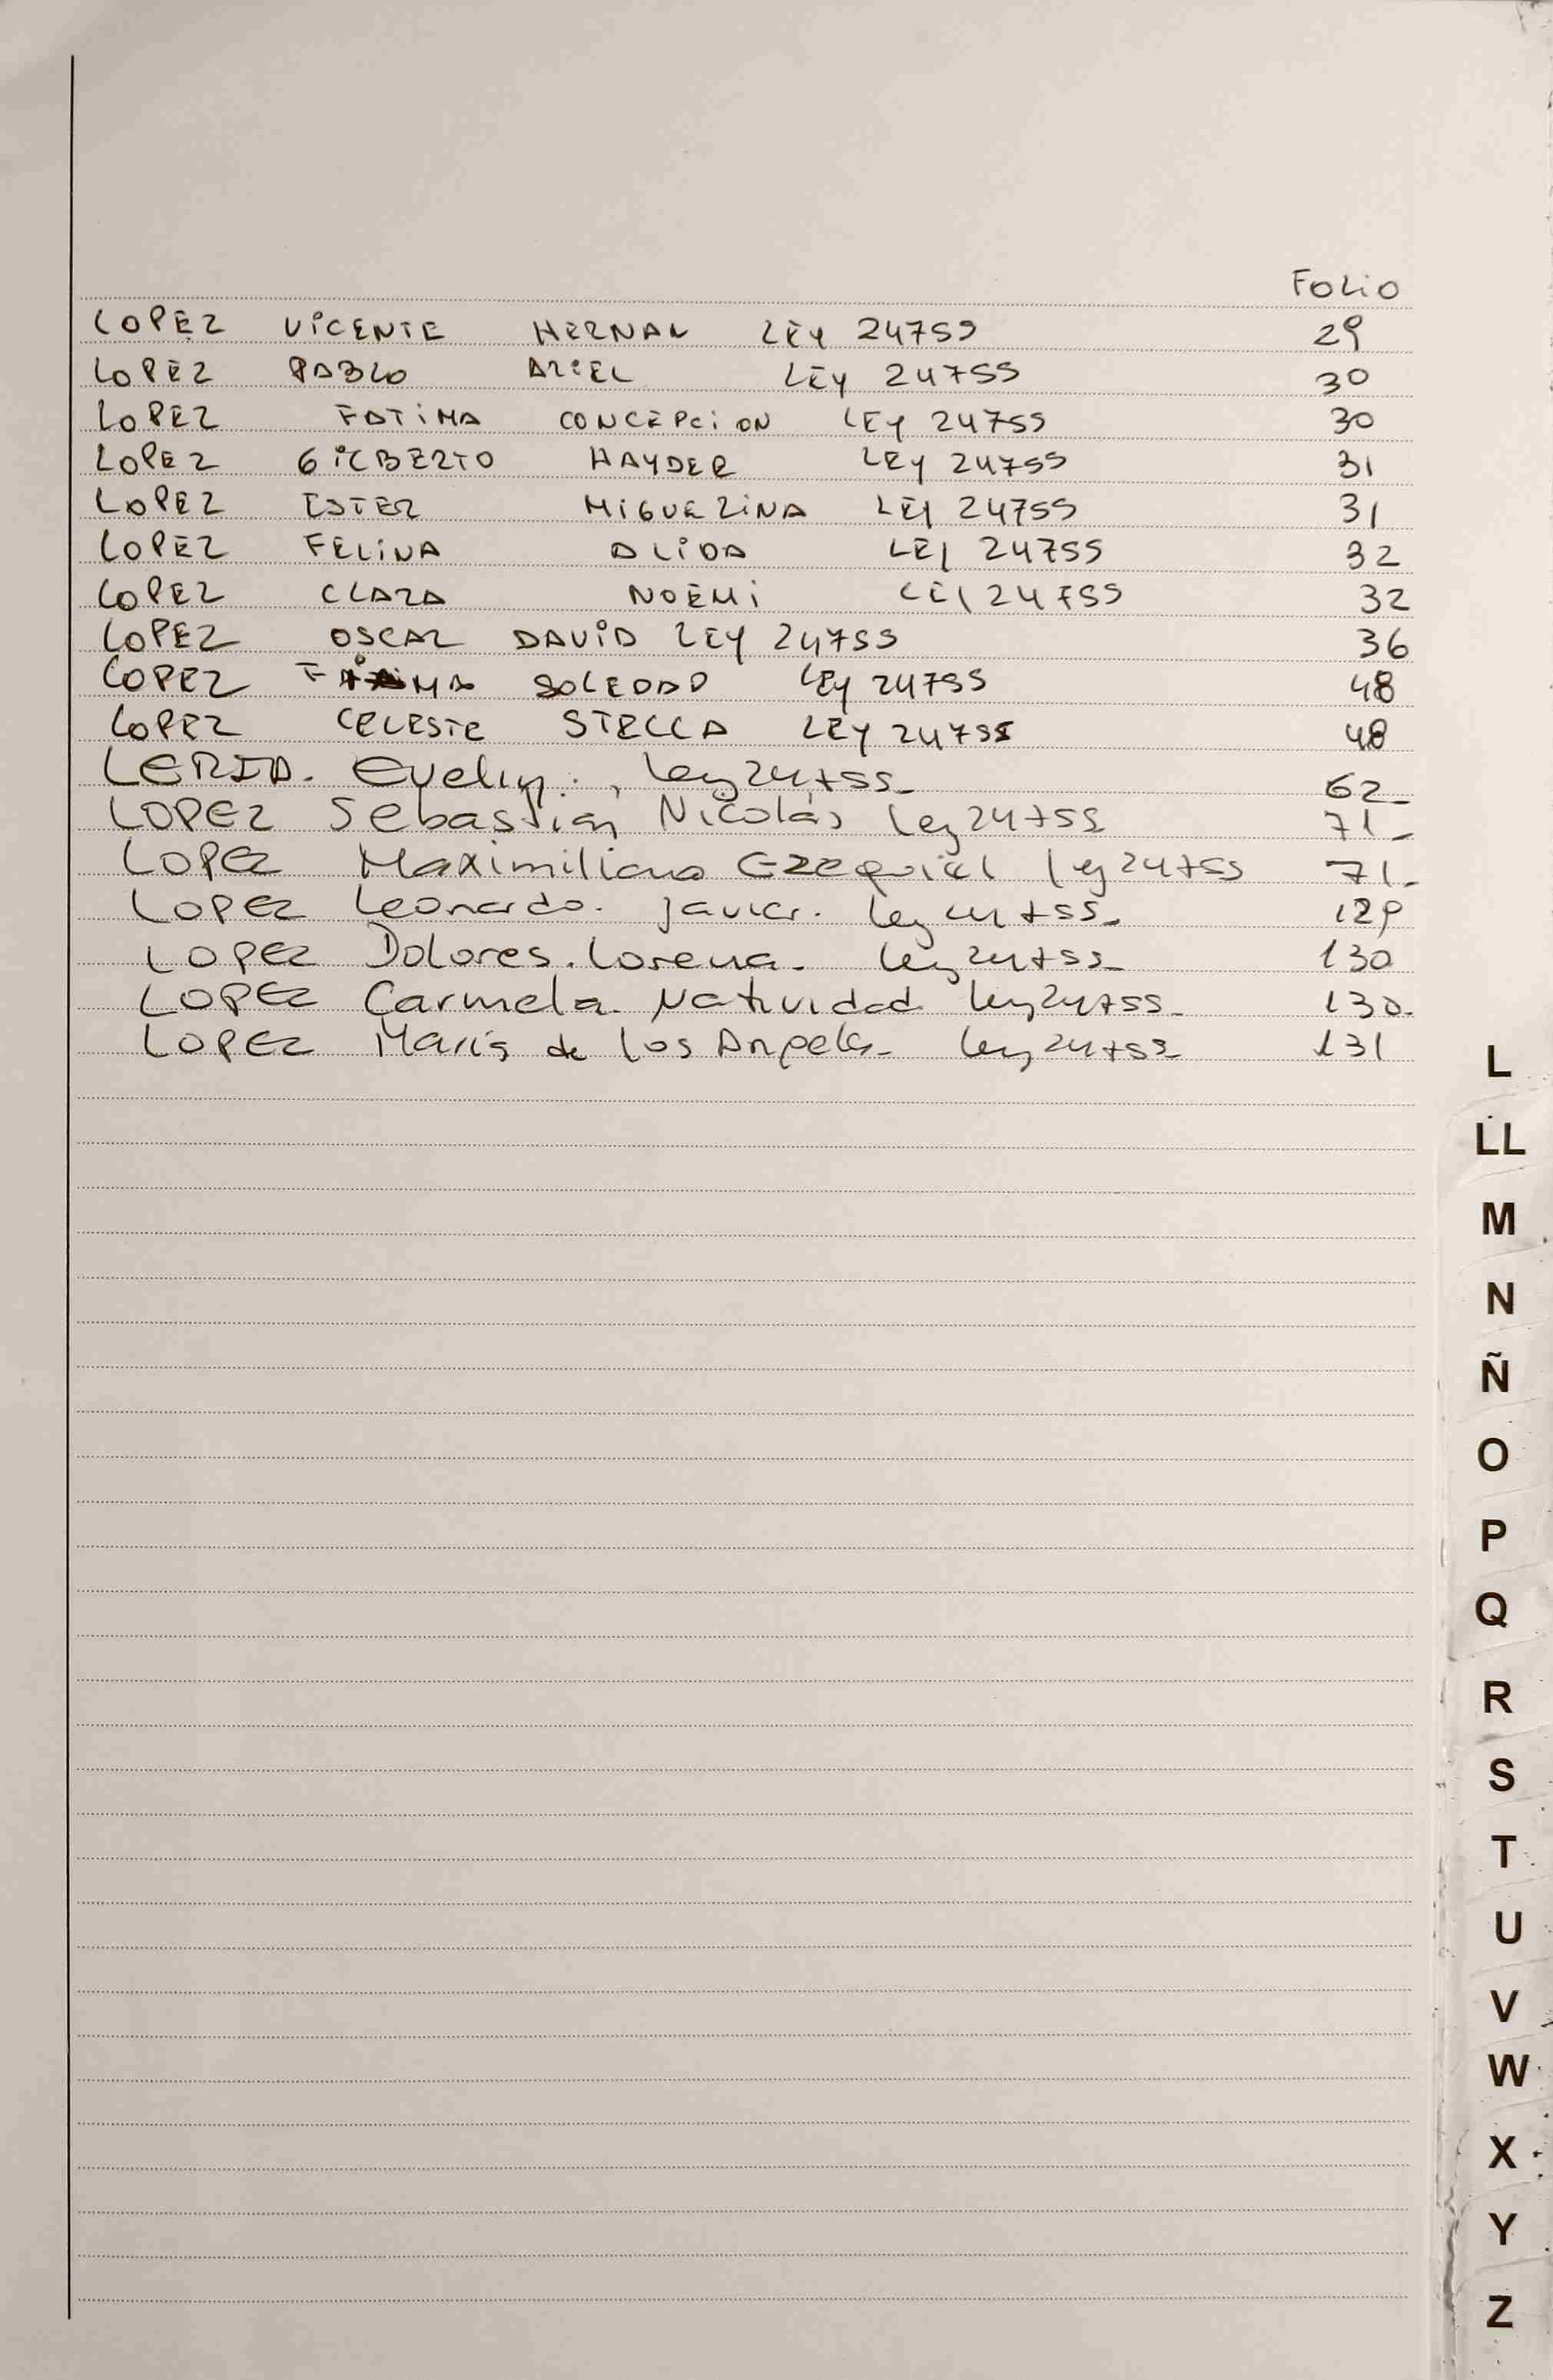 Folio
LOPEZ VICENTE HERNAN LEY 24755 29
LOPEZ PABLO ARIEL LEY 24755 30
LOPEZ FATIMA CONCEPCION LEY 24755 30
LOPEZ GILBERTO HAYDER LEY 24755 31
LOPEZ ESTER MIGUELINA LEY 24755 31
LOPEZ FELINA ALIDA LEY 24755 32
LOPEZ CLARA NOEMI LEY 24755 32
LOPEZ OSCAR DAVID LEY 24755 36
LOPEZ SOLEDAD LEY 24755 48
LOPEZ CELESTE STELLA LEY 24755 48
LERID. Evelyn. Ley 24755- 62-
LOPEZ Sebastian Nicolás Ley 24755 71-
LOPEZ Maximiliano Ezequiel Ley 24755 71-
LOPEZ Leonardo. Javier. Ley 24755- 129
LOPEZ Dolores. Lorena. Ley 24755- 130
LOPEZ Carmela Natividad Ley 24755- 130-
LOPEZ María de los Angeles- Ley 24755 131
L
LL
M
N
Ñ
O
P
Q
R
S
T
U
V
W
X
Y
Z